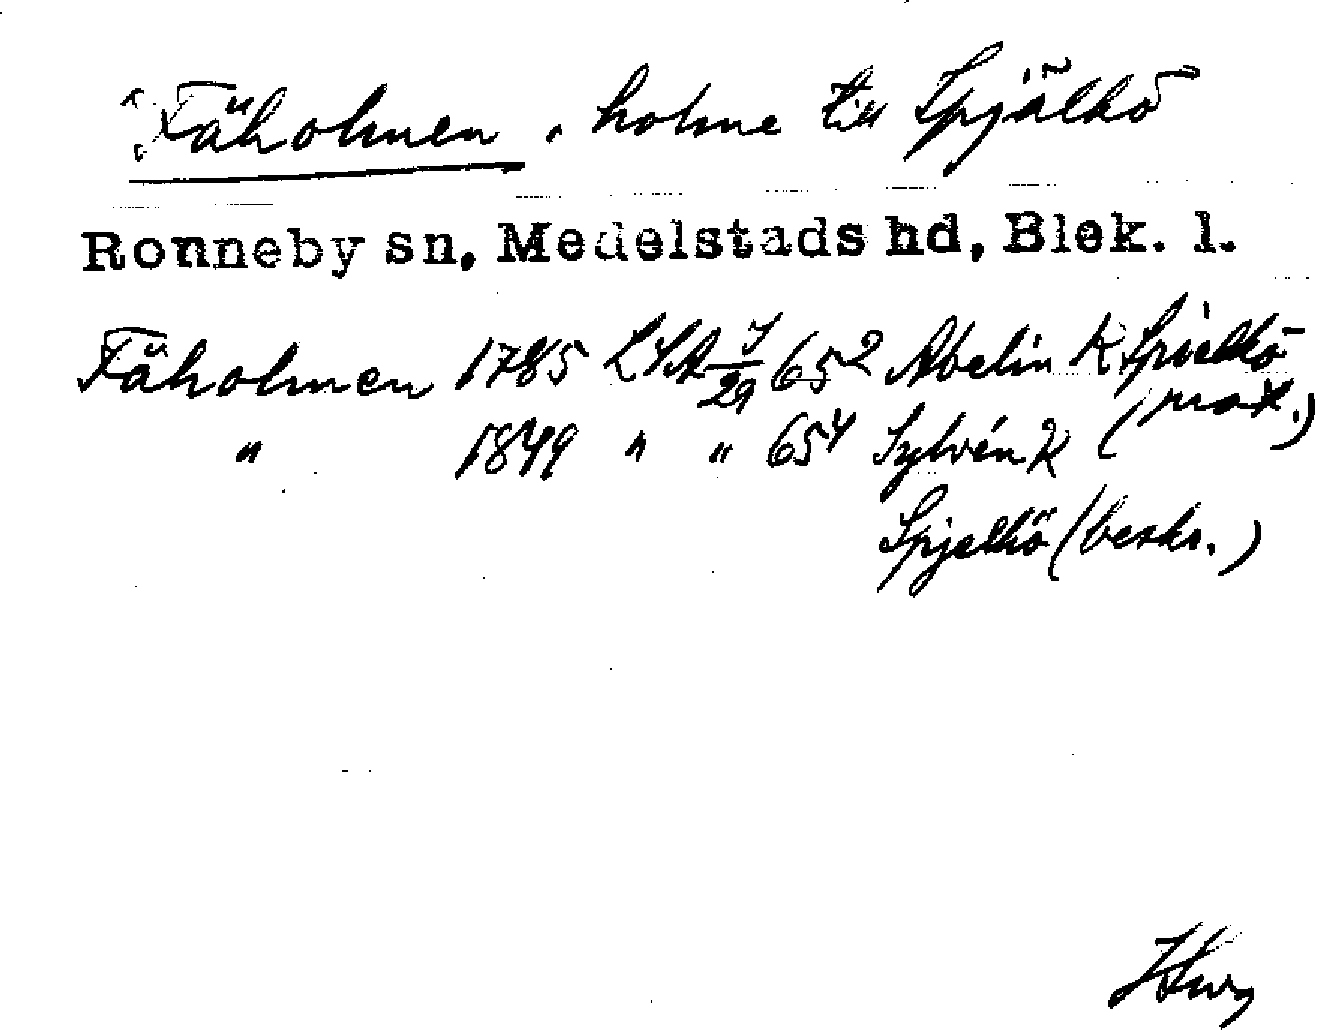 Fäholmen, holme till Spjälkö
Ronneby sn, Medelstads hd, Blek. l.
Fäholmen 1785 LSA J/29 65² Abelin K Spielkö
" 1849 " " 65⁴ Sylvén K (prot.)
Spjelkö (beskr.)